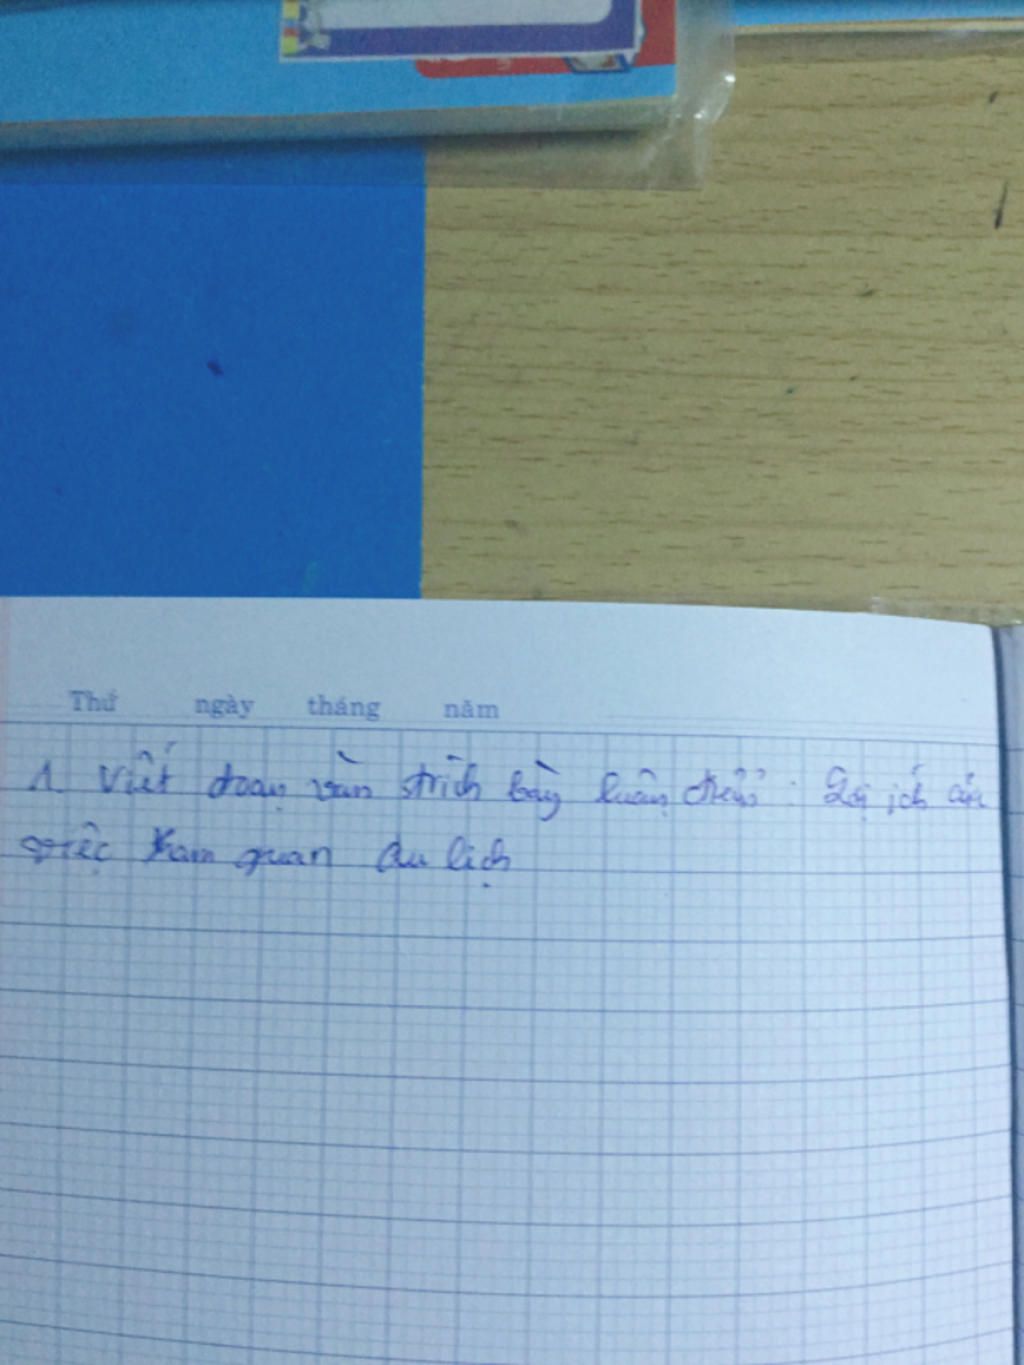 Thứ ngày tháng năm
1. Viết đoạn văn trình bày luận điểm: Lợi ích của
việc tham quan du lịch